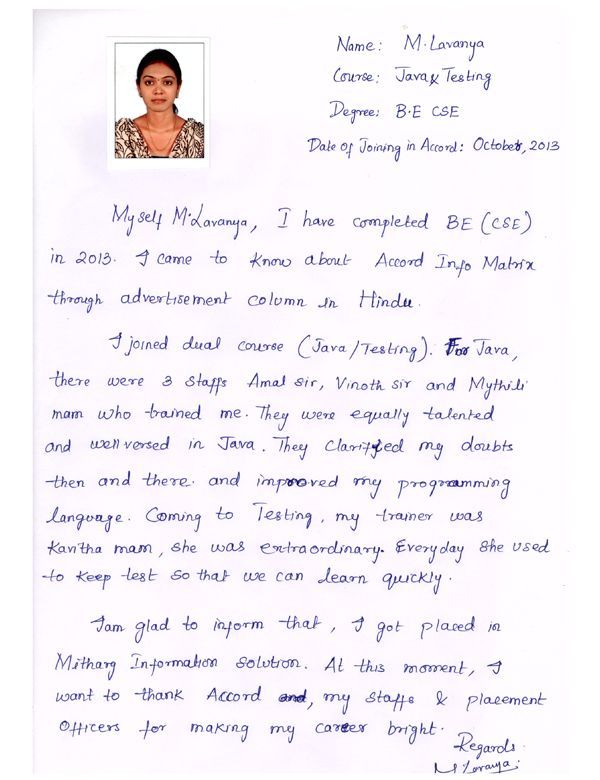 Name: M. Lavanya
Course: Java & Testing
Degree: B.E CSE
Date of Joining in Accord: October, 2013
Myself M. Lavanya, I have completed BE (CSE)
in 2013. I came to know about Accord Info Matrix
through advertisement column in Hindu.
I joined dual course (Java/Testing). For Java,
there were 3 staffs Amal sir, Vinoth sir and Mythili
mam who trained me. They were equally talented
and well versed in Java. They Clarified my doubts
then and there. and improved my programming
language. Coming to Testing, my trainer was
Kavitha mam, she was extraordinary. Everyday she used
to keep test so that we can learn quickly.
I am glad to inform that, I got placed in
Mitharg Information Solution. At this moment, I
want to thank Accord and, my staffs & placement
Officers for making my career bright.
Regards
M. Lavanya.